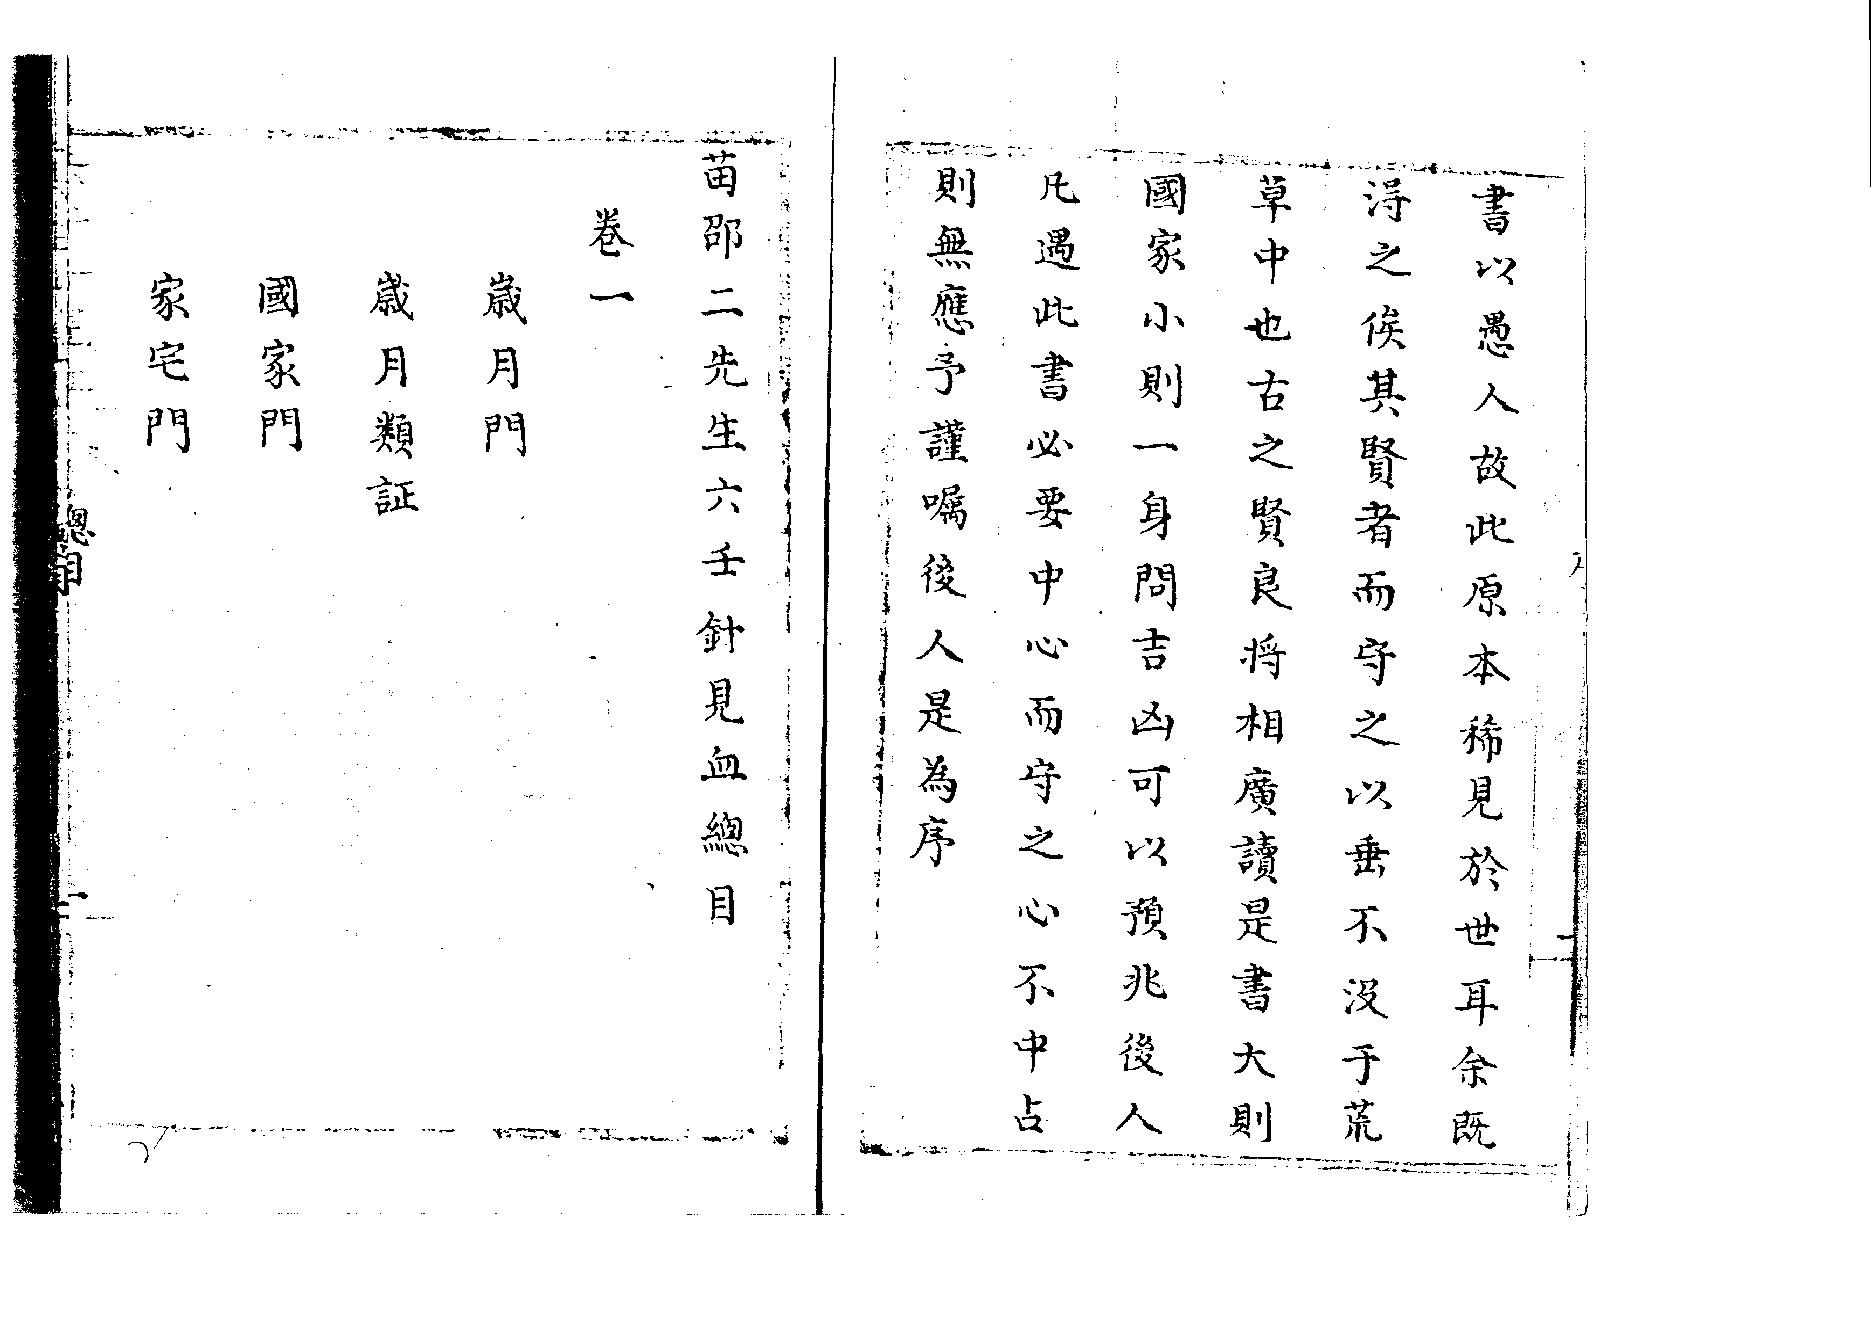 書以愚人故此原本稀見於世耳余既
淂之俟其賢者而守之以垂不没于荒
草中也古之賢良将相廣讀是書大則
國家小則一身問吉凶可以預兆後人
凡遇此書必要中心而守之心不中占
則無應予謹嘱後人是為序
苗邵二先生六壬針見血總目
卷一
歲月門
歲月類証
國家門
家宅門
總目